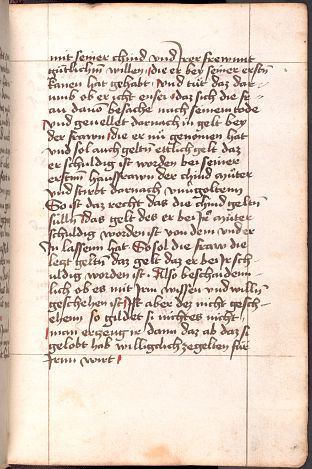 mit seiner chind vnd irer frewnnt
gütlichem willen die er bey seiner erstn̄
kanen hat gehabt vnd tüt daz dar-
umb ob er icht enser daz sich die fr-
aw dauō besache nach seinem tode
vnd geuellet darnach in gelt bey
der frawn die er nü genomen hat
vnd sol auch geltn̄ ettlich gelt daz
er schuldig ist worden bei seiner
erstnn̄ hausfrawn der chind müter
vnd stirbt darnach vnügoltenn̄
So ist daz recht das die chind geltn̄
sülln̄ das gelt des er bei Jrr̄ müter
schuldig worden ist von dem vnd er
Jn lassenn̄ hat So sol die fraw die
leczt geltn̄ daz gelt daz er bei Jr sch-
uldig worden ist Also beschaidenn̄-
lich ob es mit Jrm̄ wissen vnd willn̄
geschehen ist Jst aber dez nicht gesch-
ehenn̄ so gildet si nichtes nicht
man erzeug ir dann daz ab daz si
gelobt hab willigclich zegelten für
Jrnn wirt